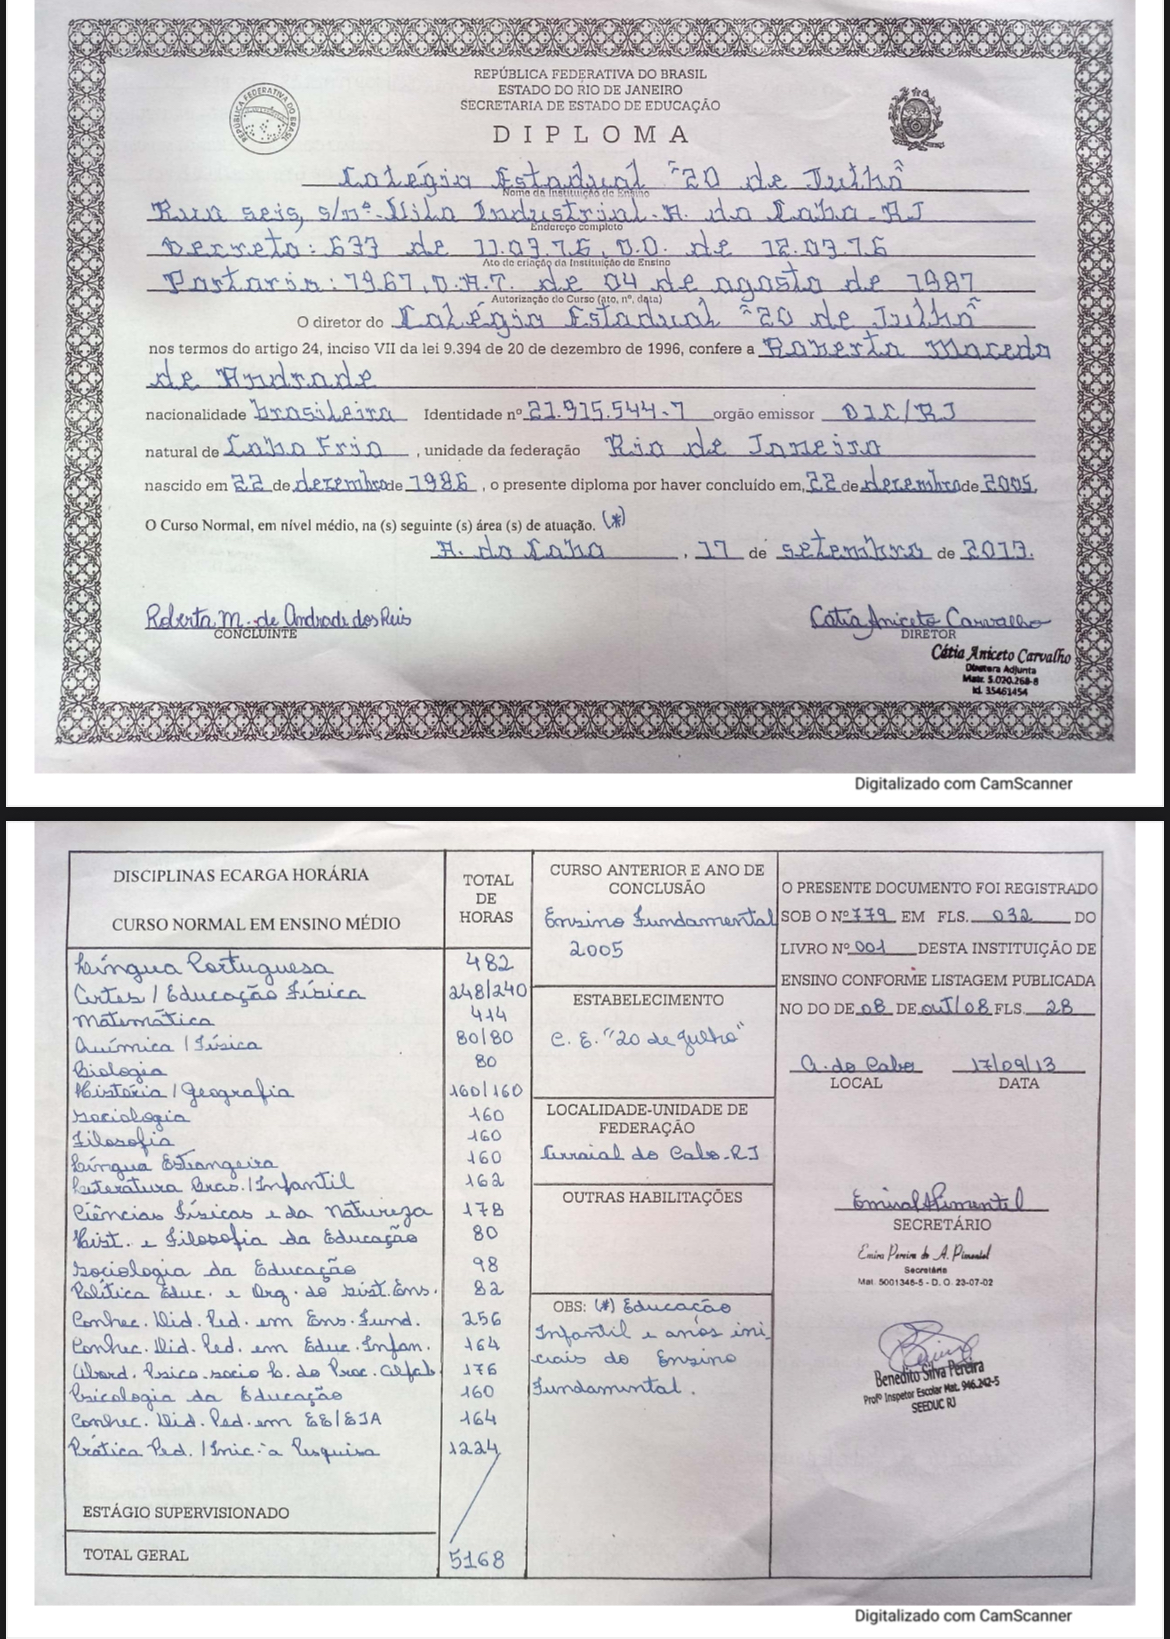 REPÚBLICA FEDERATIVA DO BRASIL
REPÚBLICA FEDERATIVA DO BRASIL
ESTADO DO RIO DE JANEIRO
SECRETARIA DE ESTADO DE EDUCAÇÃO
DIPLOMA
Colégio Estadual "20 de Julho"
Nome da Instituição de Ensino
Rua seis, s/nº - Vila Industrial - A. do Cabo - RJ
Endereço completo
Decreto: 633 de 11.03.76, D.O. de 12.03.76
Ato de criação da Instituição de Ensino
Portaria: 7967, D.A.T. de 04 de agosto de 1987
Autorização do Curso (ato, nº, data)
O diretor do Colégio Estadual "20 de Julho"
nos termos do artigo 24, inciso VII da lei 9.394 de 20 de dezembro de 1996, confere a Roberta Macedo
de Andrade
nacionalidade brasileira Identidade nº 21.915.544-7 orgão emissor DIC/RJ
natural de Cabo Frio , unidade da federação Rio de Janeiro
nascido em 22 de dezembro de 1986 , o presente diploma por haver concluído em, 22 de dezembro de 2005.
O Curso Normal, em nível médio, na (s) seguinte (s) área (s) de atuação. (*)
A. do Cabo , 17 de setembro de 2013.
Roberta M. de Andrade dos Reis
CONCLUINTE
Catia Aniceto Carvalho
DIRETOR
Cátia Aniceto Carvalho
Diretora Adjunta
Matr. 5.020.268-8
Id. 35461454
Digitalizado com CamScanner
DISCIPLINAS ECARGA HORÁRIA
CURSO NORMAL EM ENSINO MÉDIO
TOTAL
DE
HORAS
Língua Portuguesa 482
Artes / Educação Física 248/240
Matemática 414
Química / Física 80/80
Biologia 80
História / Geografia 160/160
Sociologia 160
Filosofia 160
Língua Estrangeira 160
Literatura Bras. / Infantil 162
Ciências Físicas e da Natureza 178
Hist. e Filosofia da Educação 80
Sociologia da Educação 98
Política Educ. e Org. do Sist. Ens. 82
Conhec. Did. Ped. em Ens. Fund. 256
Conhec. Did. Ped. em Educ. Infan. 164
Abord. Psico-socio L. do Proc. Alfab 176
Psicologia da Educação 160
Conhec. Did. Ped. em EE/EJA 164
Prática Ped. / Inic. à Pesquisa 1224
ESTÁGIO SUPERVISIONADO
TOTAL GERAL 5168
CURSO ANTERIOR E ANO DE
CONCLUSÃO
Ensino Fundamental
2005
ESTABELECIMENTO
C. E. "20 de Julho"
LOCALIDADE-UNIDADE DE
FEDERAÇÃO
Arraial do Cabo-RJ
OUTRAS HABILITAÇÕES
OBS: (*) Educação
Infantil e anos ini-
ciais do Ensino
Fundamental.
O PRESENTE DOCUMENTO FOI REGISTRADO
SOB O Nº 779 EM FLS. 032 DO
LIVRO Nº 001 DESTA INSTITUIÇÃO DE
ENSINO CONFORME LISTAGEM PUBLICADA
NO DO DE 08 DE out/08 FLS. 28
A. do Cabo 17/09/13
LOCAL DATA
SECRETÁRIO
Emira Pereira de A. Pimentel
Secretária
Mat. 5001346-5 - D. O. 23-07-02
Benedito Silva Pereira
Profº Inspetor Escolar Mat. 946.242-5
SEEDUC RJ
Digitalizado com CamScanner